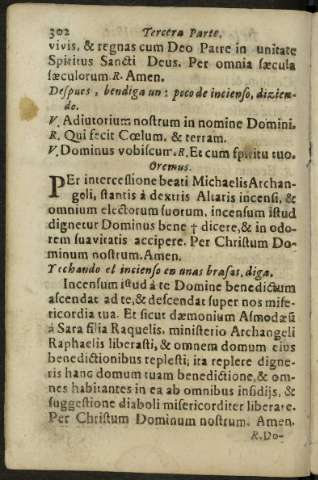 302 Tercera Parte.
vivis, & regnas cum Deo Patre in unitate
Spiritus Sancti Deus. Per omnia sæcula
sæculorum. R. Amen.
Despues, bendiga un poco de incienso, dizien-
do.
V. Adiutorium nostrum in nomine Domini.
R. Qui fecit Cœlum, & terram.
V. Dominus vobiscum. R. Et cum spiritu tuo.
Oremus.
PEr intercessione beati Michaelis Archan-
geli, stantis á dextris Altaris incensi, &
omnium electorum suorum, incensum istud
dignetur Dominus bene † dicere, & in odo-
rem suavitatis accipere. Per Christum Do-
minum nostrum. Amen.
Yechando el incienso en unas brasas, diga.
Incensum istud á te Domine benedictum
ascendat ad te, & descendat super nos mise-
ricordia tua. Et sicut dæmonium Asmodæū
á Sara filia Raquelis, ministerio Archangeli
Raphaelis liberasti, & omnem domum eius
benedictionibus replesti; ita replere digne-
ris hanc domum tuam benedictione, & om-
nes habitantes in ea ab omnibus insidijs, &
suggestione diaboli misericorditer liberare.
Per Christum Dominum nostrum. Amen.
R. Do-